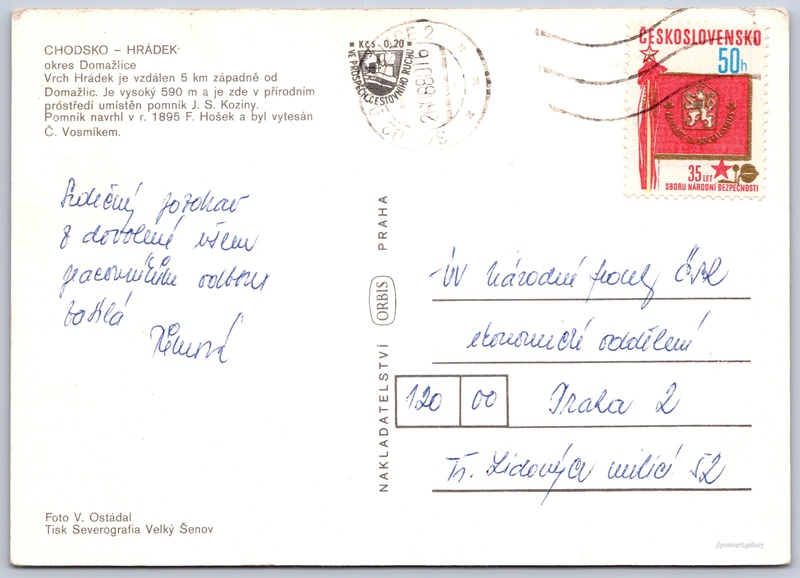 CHODSKO – HRÁDEK
okres Domažlice
Vrch Hrádek je vzdálen 5 km západně od
Domažlic. Je vysoký 590 m a je zde v přírodním
próstředí umístěn pomník J. S. Koziny.
Pomník navrhl v r. 1895 F. Hošek a byl vytesán
Č. Vosmíkem.
Kčs 0,20
VE PROSPĚCH CESTOVNÍHO RUCHU
ČESKOSLOVENSKO
50h
35 LET
SBORU NÁRODNÍ BEZPEČNOSTI
Srdečný pozdrav
z dovolené všem
pracovníkům odboru
zasílá
NAKLADATELSTVÍ ORBIS PRAHA
ÚV Národní fronty ČSR
ekonomické oddělení
120 00 Praha 2
Tř. Lidových milicí 52
Foto V. Ostádal
Tisk Severografia Velký Šenov
//postcard.gallery